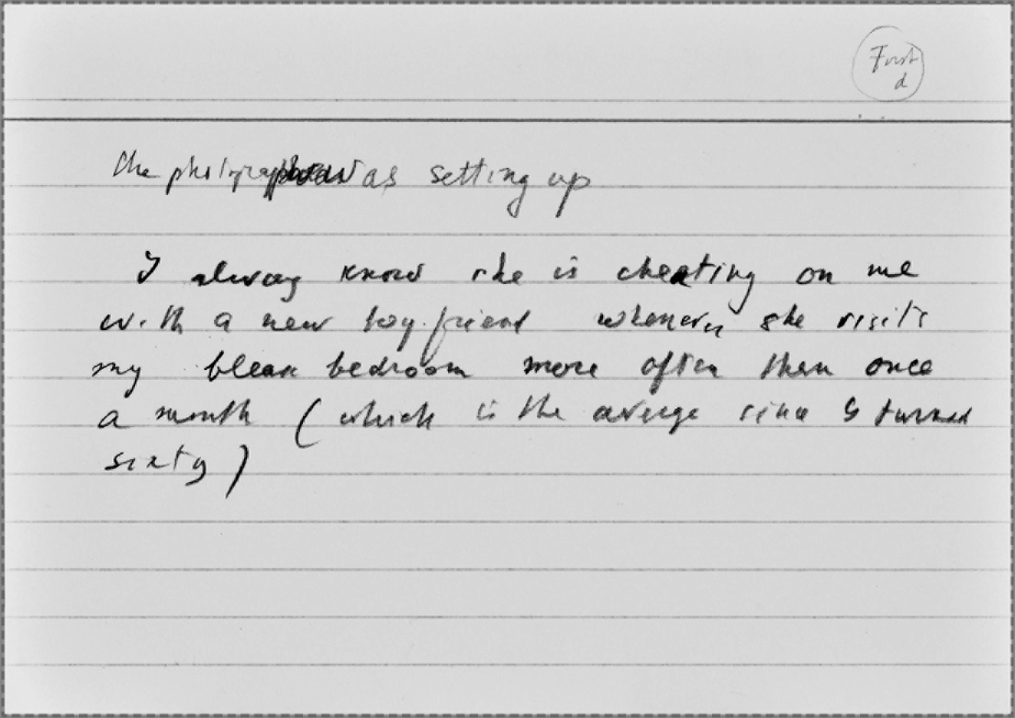 First
d
The photographer was setting up
I always know she is cheating on me
with a new boyfriend whenever she visits
my bleak bedroom more often than once
a month (which is the average since I turned
sixty)